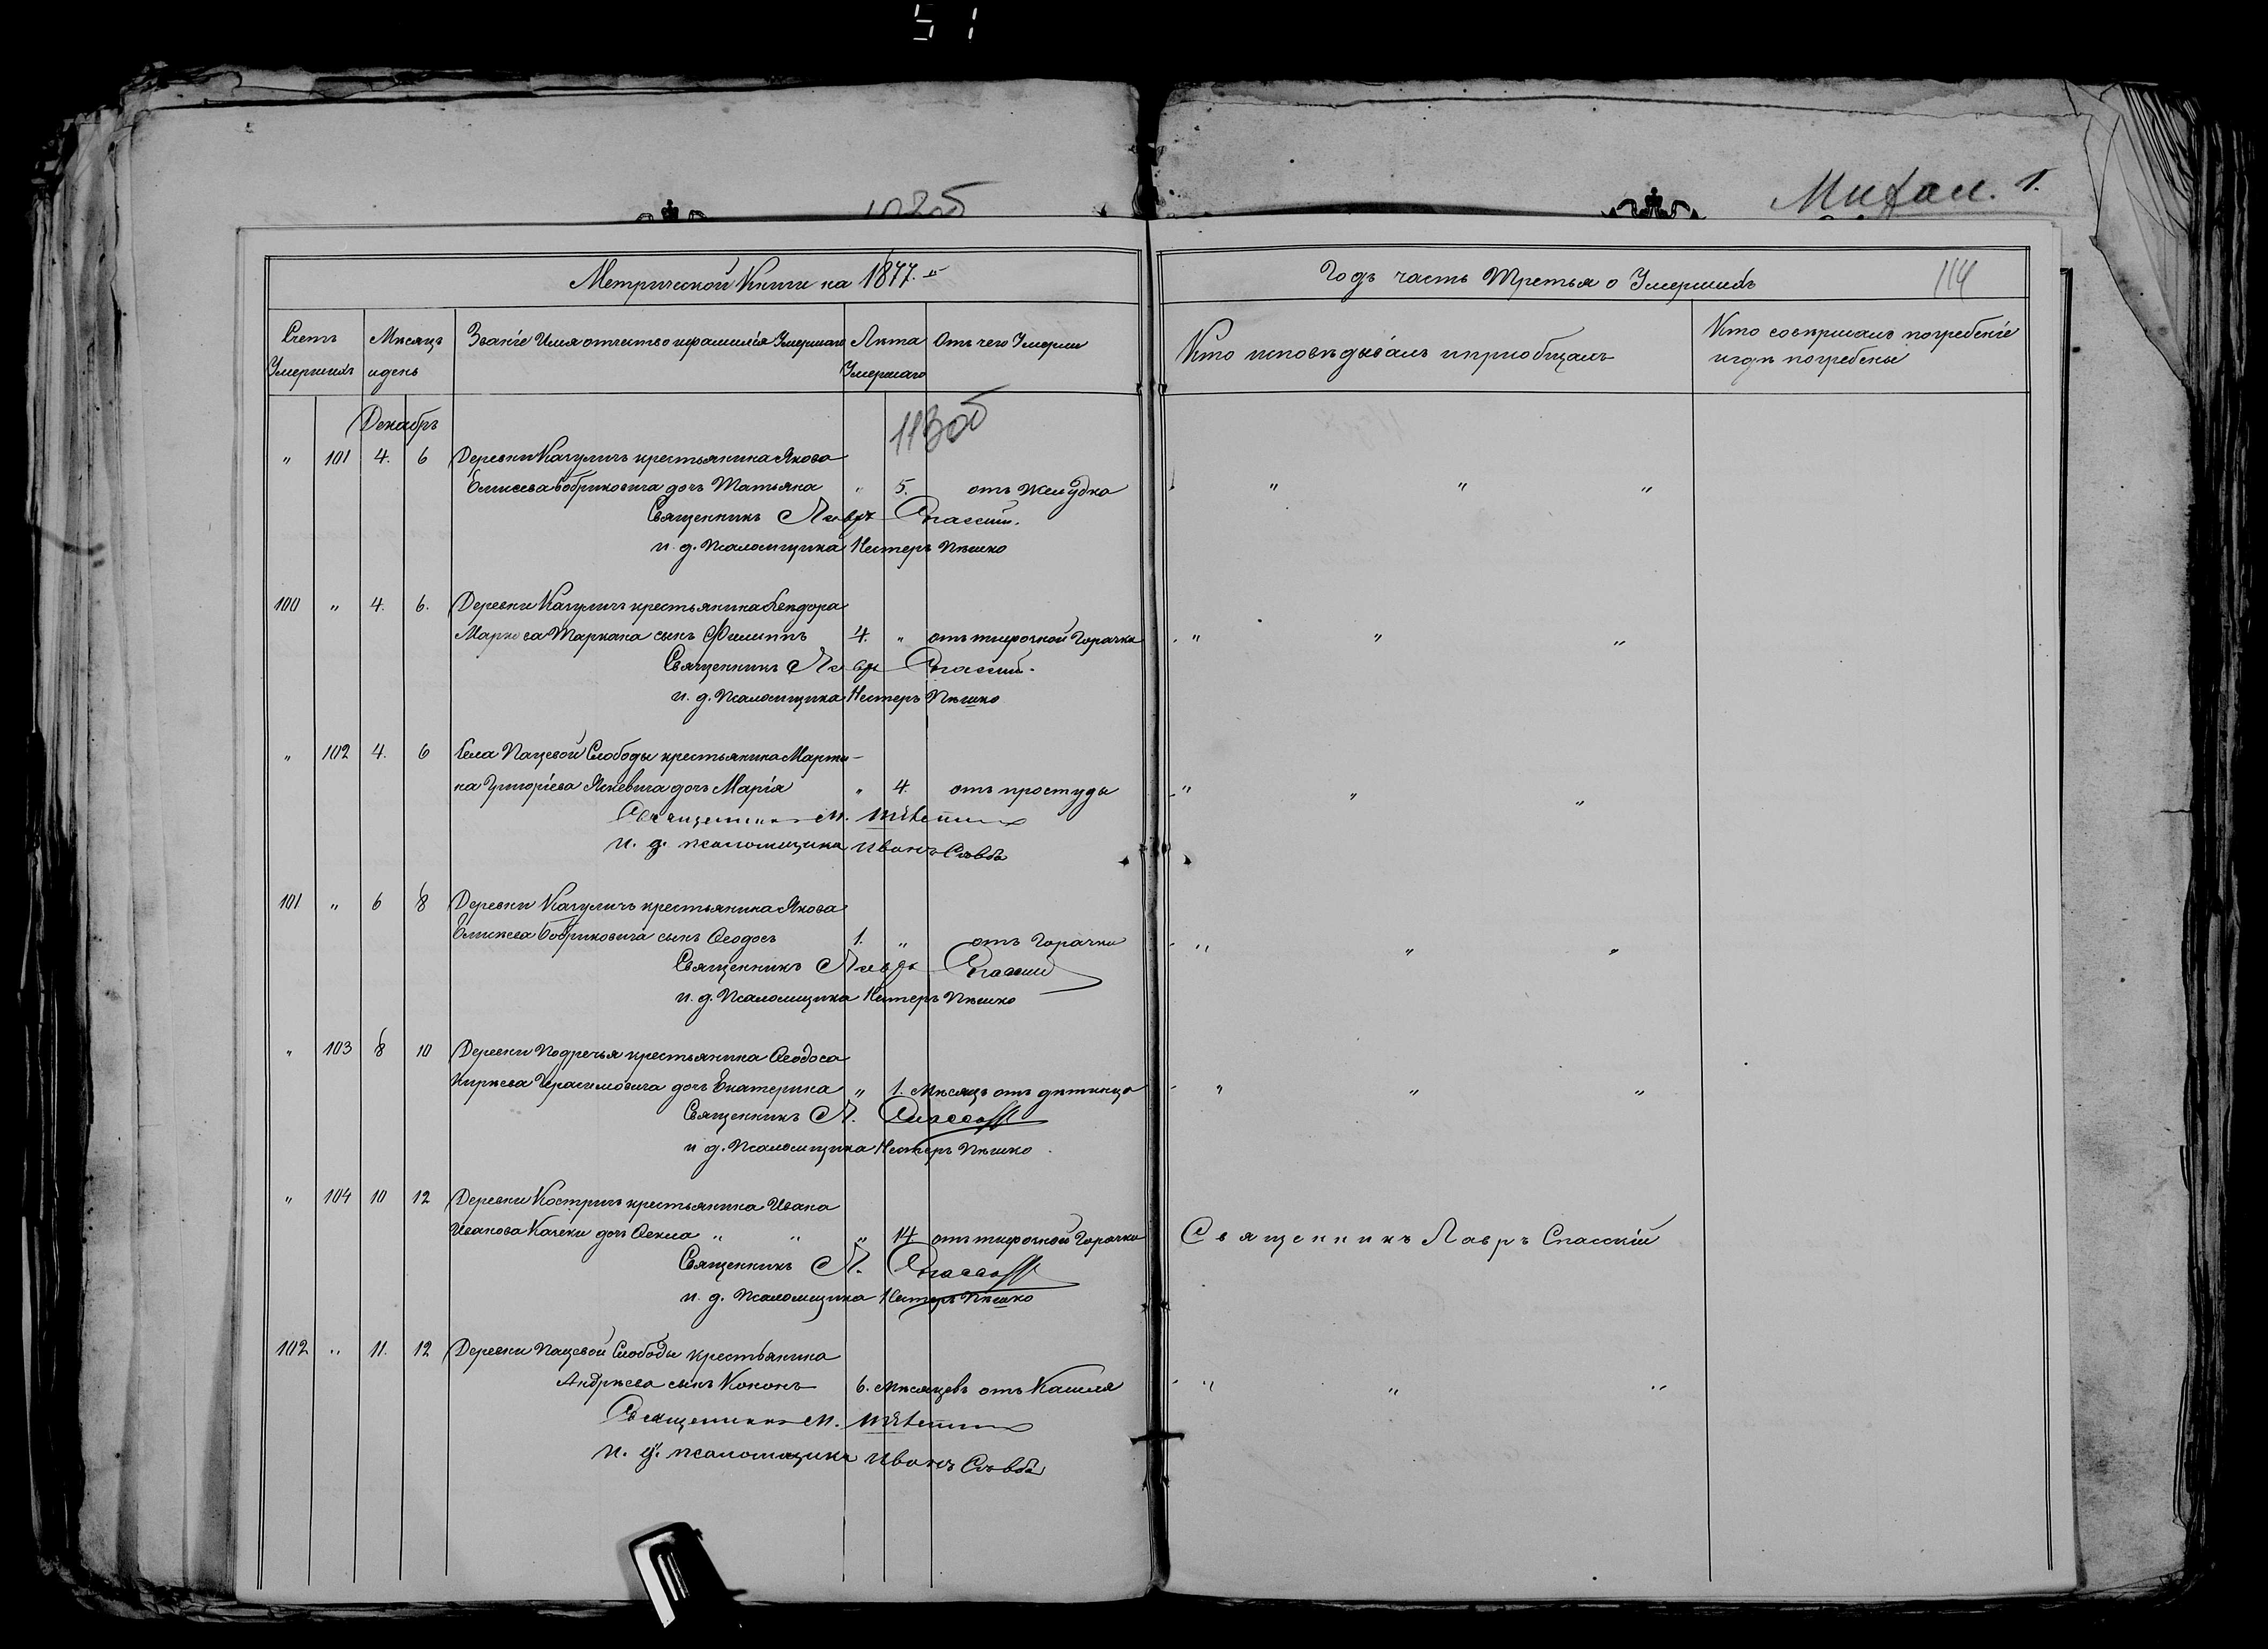 51
Михал. 1.
Метрической Книги на 1877.
Годъ часть Третья о Умершихъ
114
Счетъ Умершихъ
Мѣсяцъ и день
Званіе Имя отчество и фамилія Умершаго
Лѣта Умершаго
Отъ чего Умерли
Кто исповѣдывалъ и пріобщалъ
Кто совершалъ погребеніе и гдѣ погребены
Декабрь
113об
" 101 4. 6 Деревни Качуличъ крестьянина Якова
Елисеева Бобриковича дочь Татьяна " 5. отъ Желудка " " "
Священникъ Лавръ Спасскій.
и. д. Псаломщика Нестеръ Пѣшко
100 " 4. 6. Деревни Качуличъ крестьянина
Маркова Таркана сынъ Филиппъ 4. " отъ тифозной Горячки " " "
Священникъ Лавръ Спасскій.
и. д. Псаломщика Нестеръ Пѣшко
" 102 4. 6 Села Пацевой Слободы крестьянина Марти-
на Григоріева Яскевича дочь Марія " 4. отъ простуды " " "
Священникъ М.
и. д. псаломщика Иванъ Савва
101 " 6 8 Деревни Качуличъ крестьянина Якова
Елисѣева Бобриковича сынъ Ѳеодосъ 1. " отъ Горячки " " "
Священникъ Лавръ Спасскій
и. д. Псаломщика Нестеръ Пѣшко
" 103 8 10 Деревни Подречья крестьянина Ѳеодоса
Кирѣева Герасимовича дочь Екатерина " 1. Мѣсяцъ отъ дѣтинца " " "
Священникъ Л.
и д. Псаломщика Нестеръ Пѣшко
" 104 10 12 Деревни Костричъ крестьянина Ивана
Иванова Качеки дочь Ѳекла " " " 14 отъ тифозной Горячки Священникъ Лавръ Спасскій
Священникъ Л.
и. д. Псаломщика Нестеръ Пѣшко
102 " 11. 12 Деревни Пацевой Слободы крестьянина
Андрѣева сынъ Кононъ 6. Мѣсяцевъ отъ Кашля " " "
Священникъ М.
и. д. псаломщика Иванъ Савва